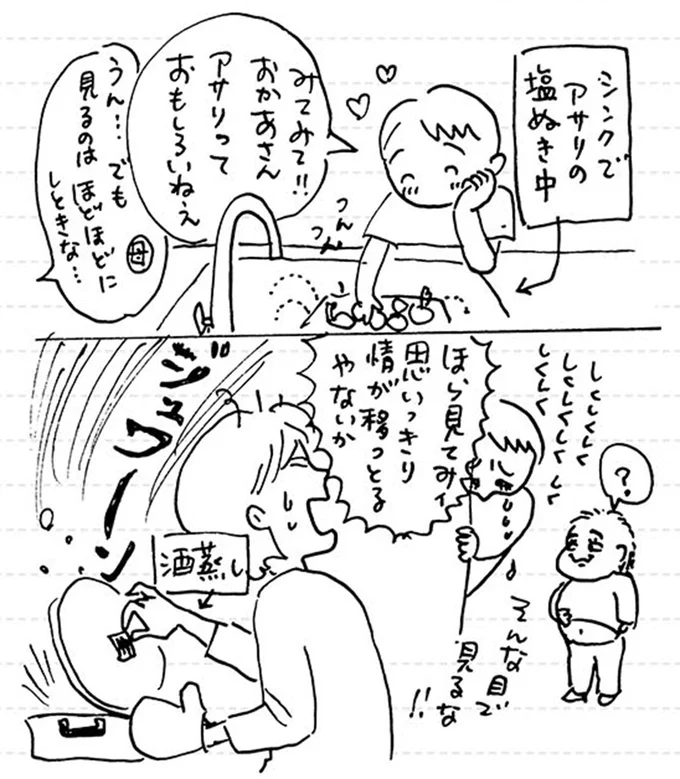 シンクで
アサリの
塩ぬき中
みてみて!!
おかあさん
アサリって
おもしろいねぇ
つんつん
つん
うん…でも
見るのはほどほどに
しときな…
母
しくしくしく
しくしくしくしく
しくしく
?
ほら見てみィ
思いっきり
情が移っとる
やないか
そんな目で
見るな
!!
ジュワーン
酒蒸し